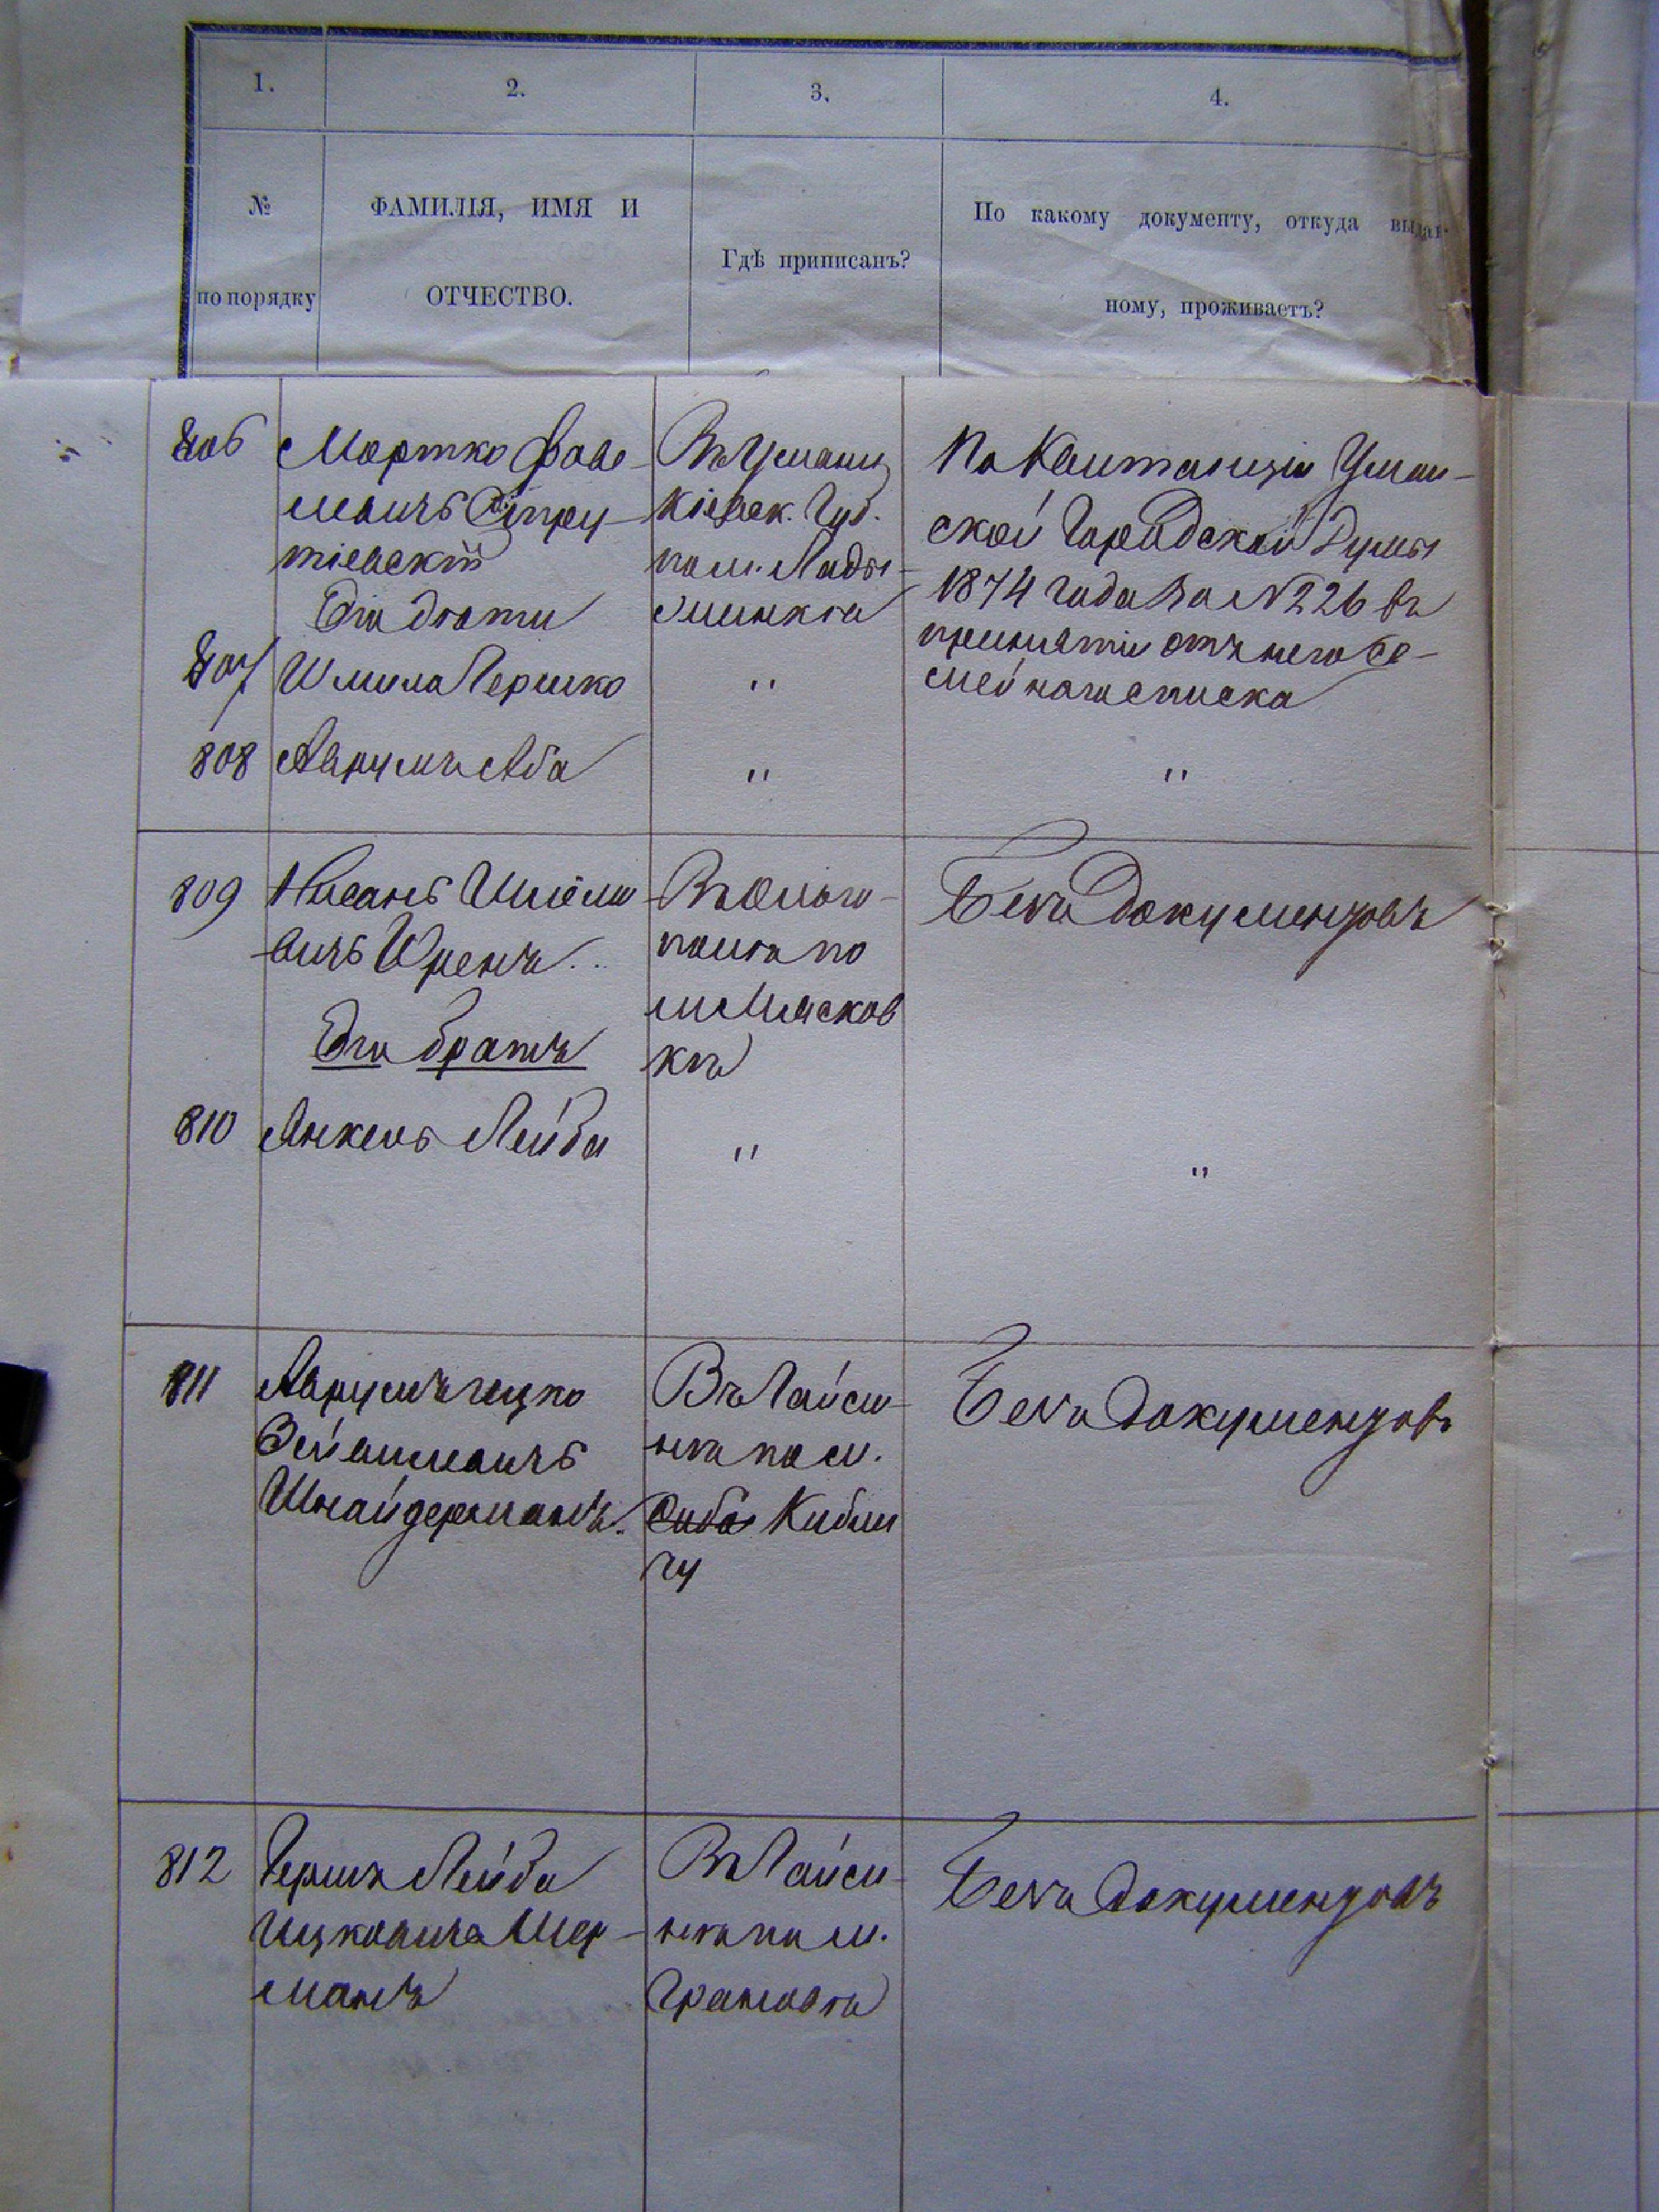 1.
2.
3.
4.
№
по порядку
ФАМИЛІЯ, ИМЯ И
ОТЧЕСТВО.
Гдѣ приписанъ?
По какому документу, откуда выдан-
ному, проживаетъ?
806
Мортко
тіевскій
Его дѣти
Въ Умани
Кіевск. Губ.
по м. Лады
жинкѣ
По Квитанціи Уман-
ской Городской Думы
1874 года за № 226 въ
принятіи отъ него се-
мейнаго списка
807
Шмила Гершко
"
808
Аврумъ Аба
"
"
809
Нисанъ Шіомо
вичъ
Его братъ
Въ Ольго-
полѣ по
м Мясков
кѣ
Безъ документовъ
810
Янкель Лейба
"
"
811
Аврумъ Ицко
Шнайдерманъ.
Въ Гайси-
нѣ по м.
Кибли
чу
Безъ документовъ
812
Гершъ Лейба
Ицковичъ Шер-
манъ
Въ Гайси-
нѣ по м.
Грановѣ
Безъ документовъ